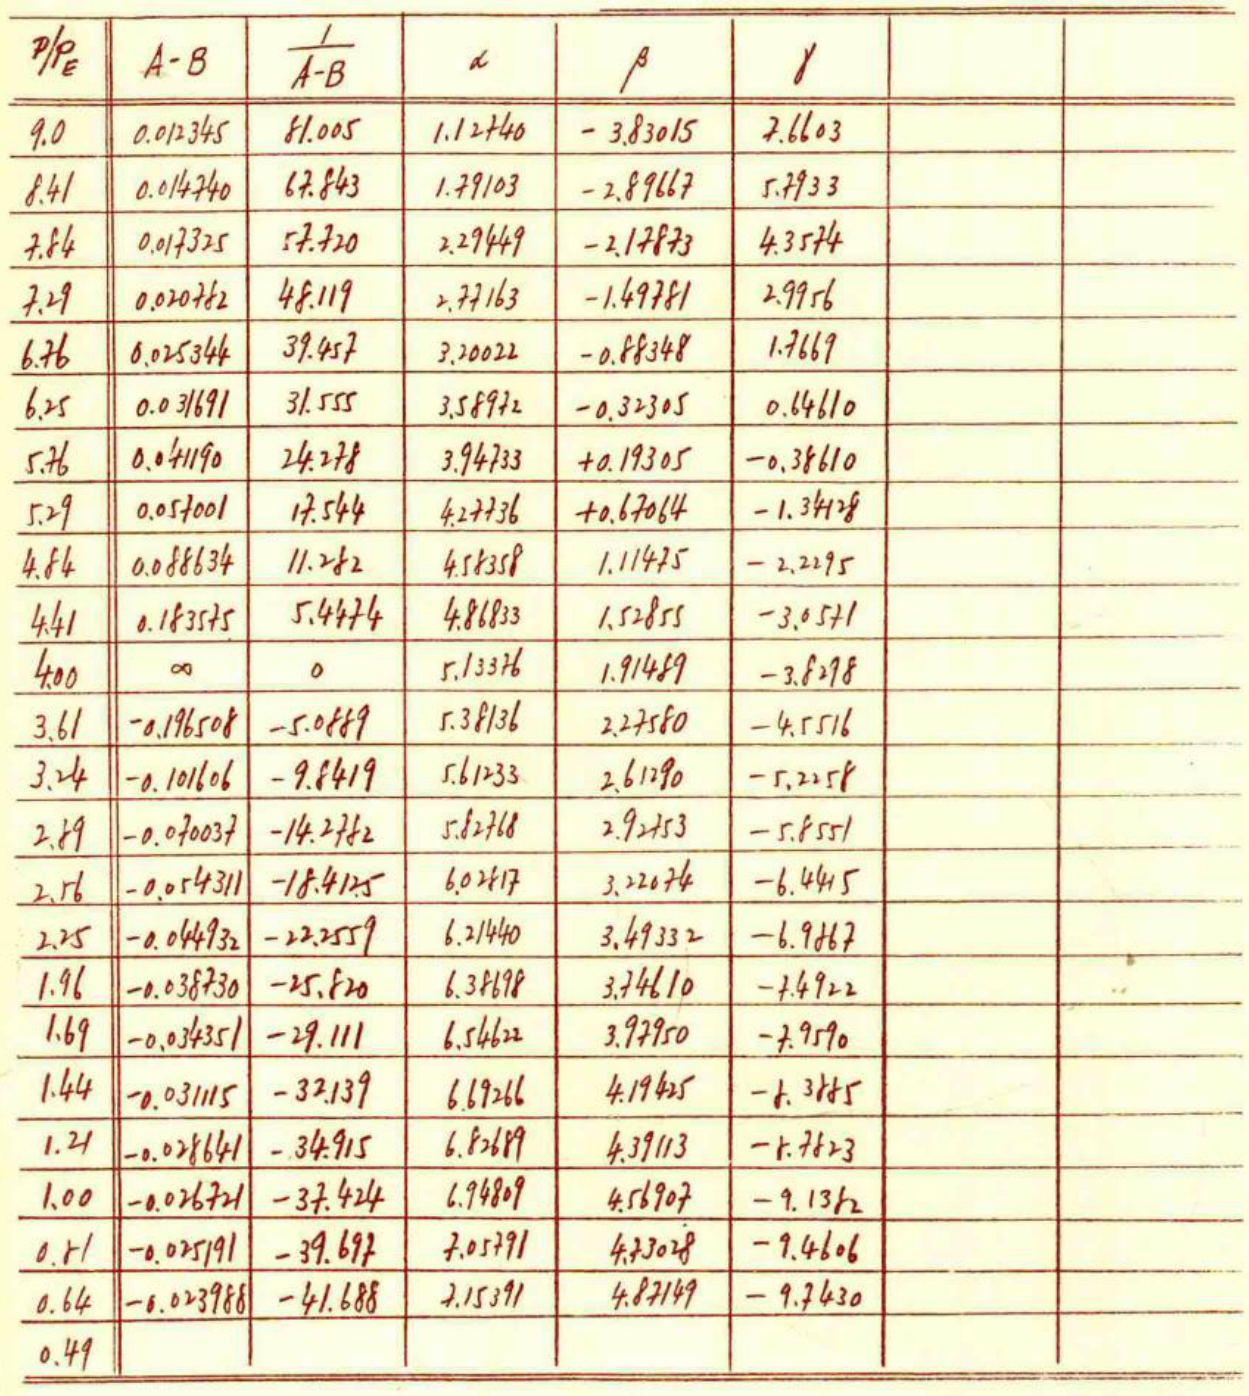 P/P_E A-B 1/(A-B) α β γ
9.0 0.012345 81.005 1.12740 -3.83015 7.6603
8.41 0.014740 67.843 1.79103 -2.89667 5.7933
7.84 0.017325 57.720 2.29449 -2.17873 4.3574
7.29 0.020782 48.119 2.77163 -1.49781 2.9956
6.76 0.025344 39.457 3.20022 -0.88348 1.7669
6.25 0.031691 31.555 3.58972 -0.32305 0.64610
5.76 0.041190 24.278 3.94733 +0.19305 -0.38610
5.29 0.057001 17.544 4.27736 +0.67064 -1.34128
4.84 0.088634 11.282 4.58358 1.11475 -2.2295
4.41 0.183575 5.4474 4.86833 1.52855 -3.0571
4.00 ∞ 0 5.13376 1.91489 -3.8298
3.61 -0.196508 -5.0889 5.38136 2.27580 -4.5516
3.24 -0.101606 -9.8419 5.61233 2.61290 -5.2258
2.89 -0.070037 -14.2782 5.82768 2.92753 -5.8551
2.56 -0.054311 -18.4125 6.02817 3.22074 -6.4415
2.25 -0.044932 -22.2559 6.21440 3.49332 -6.9867
1.96 -0.038730 -25.820 6.38698 3.74610 -7.4922
1.69 -0.034351 -29.111 6.54622 3.97950 -7.9590
1.44 -0.031115 -32.139 6.69266 4.19425 -8.3885
1.21 -0.028641 -34.915 6.82689 4.39113 -8.7823
1.00 -0.026721 -37.424 6.94809 4.56907 -9.1382
0.81 -0.025191 -39.697 7.05791 4.73028 -9.4606
0.64 -0.023988 -41.688 7.15391 4.87149 -9.7430
0.49